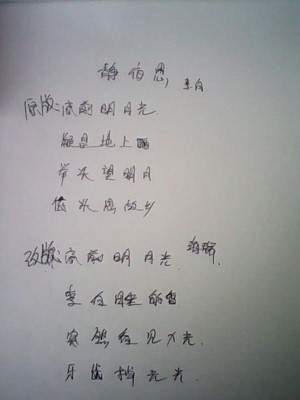 静夜思 李白
原版:床前明月光.
疑是地上
举头望明月
低头思故乡
改版:床前明月光.
李白睡的香
突然 见 光.
牙齿掉光光.